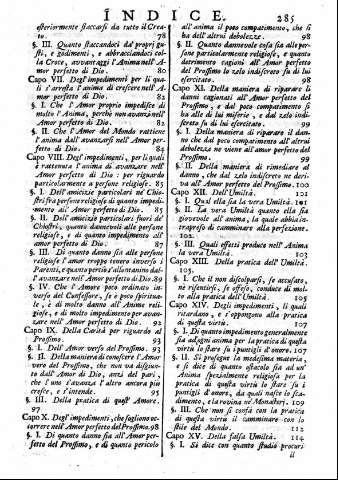 INDICE. 285
esteriormente staccarsi da tutto il Creato. 78
§. III. Quanto staccandoci da' proprj gusti, e godimenti, e abbracciandoci colla Croce, avvantaggi l'Anima nell'Amor perfetto di Dio. 80
Capo VII. Degl'impedimenti per li quali s'arresta l'anima di crescere nell'Amor perfetto di Dio. 82
§. I. Che l'Amor proprio impedisce di molto l'Anima, perchè non avanzi nell'Amor perfetto di Dio. 82
§. II. Che l'Amor del Mondo rattiene l'anima dall'avanzarsi nell'Amor perfetto di Dio. 84
Capo VIII. Degl'impedimenti, per li quali è rattenuta l'anima di avanzare nell'Amor perfetto di Dio: per riguardo particolarmente a persone religiose. 85
§. I. Dell'amicizie particolari ne' Chiostri fra persone religiose di quanto impedimento all'Amor perfetto di Dio. 85
§. II. Dell'amicizie particolari fuori de' Chiostri, quanto dannevoli alle persone religiose, e di quanto impedimento all'amor perfetto di Dio. 87
§. III. Di quanto danno sia alle persone religiose l'amor troppo tenero inverso i Parenti, e quanto perciò s'allontanino dall'avanzare nell'Amor perfetto di Dio. 89
§. IV. Che l'Amore poco ordinato inverso del Confessore, se è poco spirituale, è di molto danno all'Anime religiose, e di molto impedimento per avanzare nell'Amor perfetto di Dio. 92
Capo IX. Della Carità per riguardo al Prossimo. 93
§. I. Dell'Amor verso del Prossimo. 93
§. II. Della maniera di conoscere l'Amor vero del Prossimo, che non va disgiunto dall'Amor di Dio, anzi del pari, che l'uno s'avanza l'altro ancora più cresce, e s'intende. 95
§. III. Della pratica di quest'Amore. 97
Capo X. Degl'impedimenti, che sogliono occorrere nell'Amor perfetto del Prossimo. 98
§. I. Di quanto danno sia all'Amor perfetto del Prossimo, e di quanto pericolo
all'anima il poco compatimento, che si ha dell'altrui debolezze. 98
§. II. Quanto dannevole cosa sia alle persone particolarmente religiose, e quanto detrimento cagioni all'Amor perfetto del Prossimo lo zelo indiscreto su di lui esercitato. 98
Capo XI. Della maniera di riparare li danni cagionati all'Amor perfetto del Prossimo, e dal poco compatimento si ha alle di lui miserie, e dal zelo indiscreto su di lui esercitato. 99
§. I. Della maniera di riparare il danno che dal poco compatimento all'altrui debolezza ne viene all'amor perfetto del Prossimo. 99
§. II. Della maniera di rimediare al danno, che dal zelo indiscreto ne deriva all'Amor perfetto del Prossimo. 100
Capo XII. Dell'Umiltà. 101
§. I. Qual ella sia la vera Umiltà. 101
§. II. La vera Umiltà quanto ella sia giovevole all'anima, la quale abbia intrapreso di camminare alla perfezione. 102.
§. III. Quali effetti produce nell'Anima la vera Umiltà. 103
Capo XIII. Della pratica dell'Umiltà. 105.
§. I. Che il non discolparsi, se accusato, nè risentirsi, se offeso, conduce di molto alla pratica dell'Umiltà. 105
Capo XIV. Degli impedimenti, li quali ritardano, e s'oppongono alla pratica di questa virtù. 107
§. I. Di quanto impedimento generalmente sia ad ogni anima per la pratica di questa virtù lo stare su i puntigli d'onore. 107
§. II. Si prosegue la medesima materia, e si dice di quanto ostacolo sia ad un'Anima specialmente religiosa per la pratica di questa virtù lo stare su i puntigli d'onore, da quali nasce lo scadimento, e la rovina ne' Monasteri. 109
§. III. Che non si confà con la pratica di questa virtù il camminare con lo stile del Mondo. 112
Capo XV. Della falsa Umiltà. 114
§. I. Si dice con quanto studio procuri
il